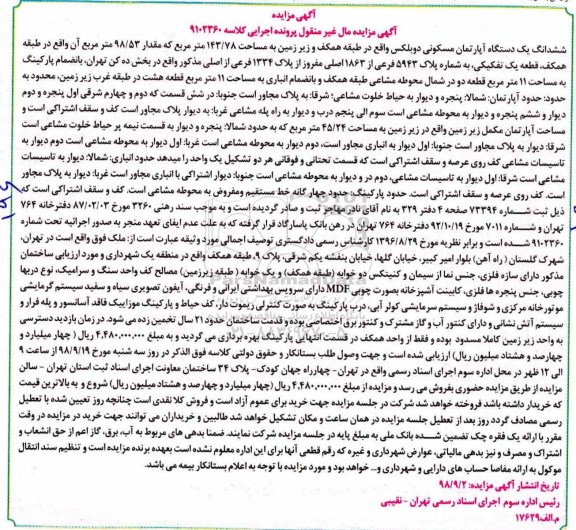 آگهی مزایده
آگهی مزایده مال غیر منقول پرونده اجرایی کلاسه ۹۱۰۲۳۶۰
ششدانگ یک دستگاه آپارتمان مسکونی دوبلکس واقع در طبقه همکف و زیر زمین به مساحت ۱۴۳/۷۸ متر مربع که مقدار ۹۸/۵۳ متر مربع آن واقع در طبقه
همکف، قطعه یک تفکیکی، به شماره پلاک ۵۹۴۳ فرعی از ۱۸۶۳ اصلی مفروز از پلاک ۱۳۳۴ فرعی از اصلی مذکور واقع در بخش ده کن تهران، بانضمام پارکینگ
به مساحت ۱۱ متر مربع قطعه دو در شمال محوطه مشاعی طبقه همکف و بانضمام انباری به مساحت ۱۱ متر مربع قطعه هشت در طبقه غرب زیر زمین، محدود به
حدود: حدود آپارتمان: شمالا: پنجره و دیوار به حیاط خلوت مشاعی؛ شرقا: به پلاک مجاور است جنوبا: در شش قسمت که دوم و چهارم شرقی اول پنجره و دوم
دیوار و ششم پنجره و دیوار به محوطه مشاعی است سوم الی پنجم درب و دیوار به راه پله مشاعی غربا: به دیوار پلاک مجاور است کف و سقف اشتراکی است و
مساحت آپارتمان مکمل زیر زمین واقع در زیر زمین به مساحت ۴۵/۲۴ متر مربع که به حدود شمالا: پنجره و دیوار به قسمت نیمه پر حیاط خلوت مشاعی است
شرقا: دیوار به پلاک مجاور است جنوبا: اول دیوار به انباری مجاور است، دوم دیوار به محوطه مشاعی است غربا: اول دیوار به محوطه مشاعی است دوم دیوار به
تاسیسات مشاعی کف روی عرصه و سقف اشتراکی است که قسمت تحتانی و فوقانی هر دو تشکیل یک واحد را میدهد حدود انباری: شمالا: دیوار به تاسیسات
مشاعی است شرقا: اول دیوار به تاسیسات مشاعی، دوم در و دیوار به محوطه مشاعی است جنوبا: دیوار اشتراکی با انباری مجاور است غربا: دیوار به پلاک مجاور
است. کف روی عرصه و سقف اشتراکی است. حدود پارکینگ: حدود چهار گانه خط مستقیم ومفروض به محوطه مشاعی است. کف و سقف اشتراکی است که
ذیل ثبت شماره ۷۳۳۹۴ صفحه ۴ دفتر ۳۲۹ به نام آقای نادر مهاجر ثبت و صادر گردیده است و به موجب سند رهنی ۳۲۶۰ مورخ ۸۷/۰۲/۰۳ دفترخانه ۷۶۴
تهران و شماره ۷۰۱۱ مورخ ۹۲/۱۰/۱۹ دفترخانه ۷۶۴ تهران در رهن بانک پاسارگاد قرار گرفته که به علت عدم ایفای تعهد منجر به صدور اجرائیه تحت شماره
۹۱۰۲۳۶۰ شده است و برابر نظریه مورخ ۱۳۹۶/۸/۲۹ کارشناس رسمی دادگستری توصیف اجمالی مورد وثیقه عبارت است از: ملک فوق واقع است در تهران،
شهرک گلستان (راه آهن) بلوار امیر کبیر، خیابان گلها، خیابان بنفشه یکم شرقی، پلاک ۹، طبقه همکف واقع در منطقه یک شهرداری و مورد ارزیابی ساختمان
مذکور دارای سازه فلزی، جنس نما از سیمان و کنیتکس دو خوابه (طبقه همکف) و یک خوابه (طبقه زیرزمین) مصالح کف واحد سنگ و سرامیک، نوع دربها
چوبی، جنس پنجره ها فلزی، کابینت آشپزخانه بصورت چوبی MDF دارای سرویس بهداشتی ایرانی و فرنگی، آیفون تصویری سیاه و سفید سیستم گرمایشی
موتورخانه مرکزی و شوفاژ و سیستم سرمایشی کولر آبی، درب پارکینگ به صورت کنترلی ریموت دار، کف حیاط و پارکینگ موزاییک فاقد آسانسور و پله فرار و
سیستم آتش نشانی و دارای کنتور آب و گاز مشترک و کنتور برق اختصاصی بوده و قدمت ساختمان حدود ۲۱ سال تخمین زده می شود. در زمان بازدید دسترسی
به واحد زیر زمین کاملا مسدود بوده و فقط از واحد همکف در قسمت انتهایی پارکینگ بهره برداری می گردید و به مبلغ ۴,۴۸۰,۰۰۰,۰۰۰ ریال ( چهار میلیارد و
چهارصد و هشتاد میلیون ریال) ارزیابی شده است و جهت وصول طلب بستانکار و حقوق دولتی کلاسه فوق الذکر در روز سه شنبه مورخ ۹۸/۹/۱۹ از ساعت ۹
الی ۱۲ ظهر در محل اداره سوم اجرای اسناد رسمی واقع در تهران- چهارراه جهان کودک- پلاک ۳۴ ساختمان معاونت اجرای اسناد ثبت استان تهران - سالن
مزایده از طریق مزایده حضوری بفروش می رسد و مزایده از مبلغ ۴,۴۸۰,۰۰۰,۰۰۰ ریال (چهار میلیارد و چهارصد و هشتاد میلیون ریال) شروع و به بالاترین قیمت
که خریدار داشته باشد فروخته خواهد شد شرکت در جلسه مزایده جهت خرید برای عموم آزاد است و فروش کلا نقدی است چنانچه روز تعیین شده با تعطیل
رسمی مصادف گردد روز بعد از تعطیل جلسه مزایده در همان ساعت و مکان تشکیل خواهد شد طالبین و خریداران می توانند جهت خرید در مزایده در وقت
مقرر با ارائه یک فقره چک تضمین شده بانک ملی به مبلغ پایه در جلسه مزایده شرکت نمایند. ضمنا بدهی های مربوط به آب، برق، گاز اعم از حق انشعاب و
اشتراک و مصرف و نیز بدهی مالیاتی، عوارض شهرداری و غیره که رقم قطعی آنها برای این اداره معلوم نشده است بعهده برنده مزایده است و تنظیم سند انتقال
موکول به ارائه مفاصا حساب های دارایی و شهرداری و... خواهد بود و مورد مزایده با توجه به اعلام بستانکار بیمه می باشد.
تاریخ انتشار آگهی مزایده: ۹۸/۹/۲
رئیس اداره سوم اجرای اسناد رسمی تهران - نقیبی
م.الف۱۷۶۲۹